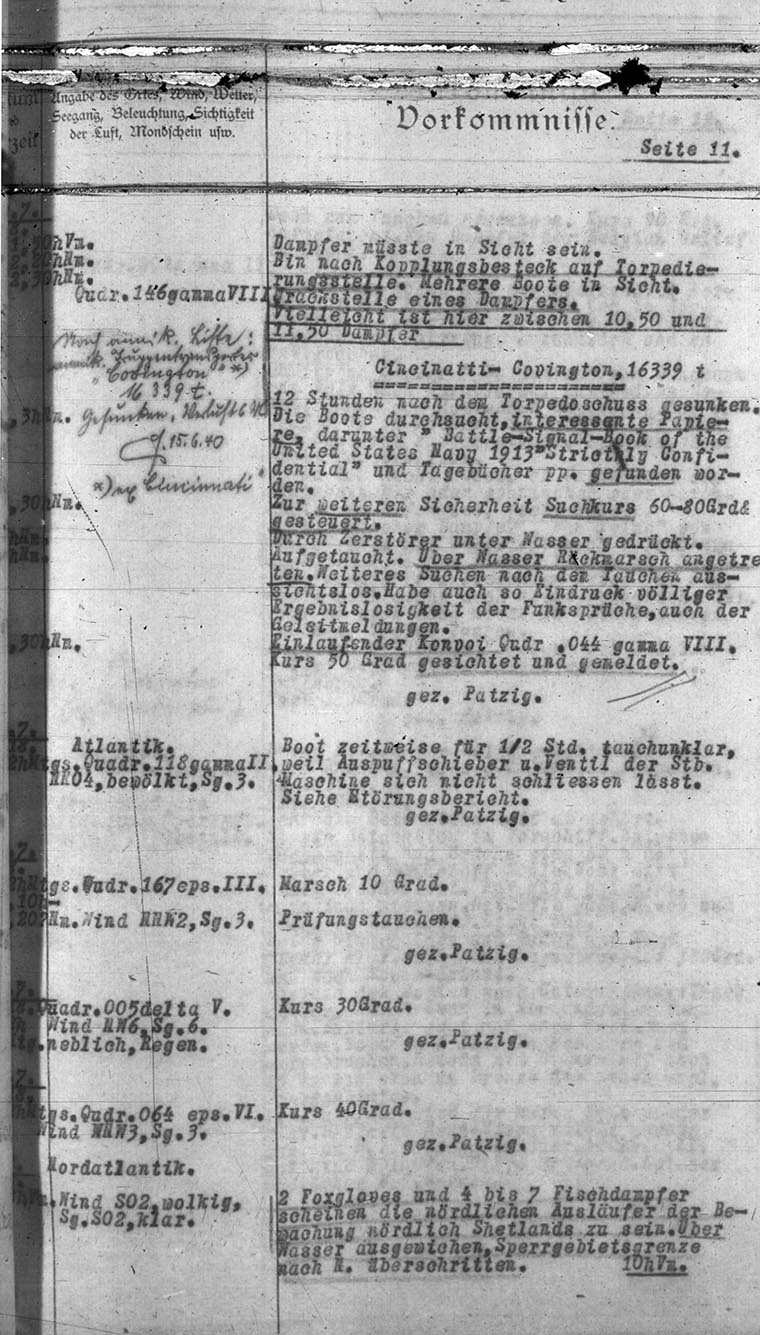 Angabe des Ortes, Wind, Wetter,
Seegang, Beleuchtung, Sichtigkeit
der Luft, Mondschein usw.
Vorkommnisse.
Seite 11.
Dampfer müsste in Sicht sein.
Bin nach Kopplungsbesteck auf Torpedie-
rungsstelle. Mehrere Boote in Sicht.
Quadr.146gammaVIII
Wrackstelle eines Dampfers.
Vielleicht ist hier zwischen 10,50 und
11,50 Dampfer
Nach amerik. Liste:
amerik. Truppentransporter
"Covington" *)
16 339 t.
Cincinatti- Covington,16339 t
12 Stunden nach dem Torpedoschuss gesunken.
Gesunken,
Die Boote durchsucht,interessante Papie-
re, darunter " Battle-Signal-Book of the
15.6.40
United States Navy 1913"Strichly Confi-
dential" und Tagebücher pp. gefunden wor-
den.
*) ex Cincinnati"
,30hNm.
Zur weiteren Sicherheit Suchkurs 60-80Grd&
gesteuert.
Durch Zerstörer unter Wasser gedrückt.
Aufgetaucht. Über Wasser Rückmarsch angetre
ten.Weiteres Suchen nach dem Tauchen aus-
sichtslos.Habe auch so Eindruck völliger
Ergebnislosigkeit der Funksprüche,auch der
Geleitmeldungen.
,30hNm.
Einlaufender Konvoi Qudr .044 gamma VIII.
Kurs 50 Grad gesichtet und gemeldet.
gez. Patzig.
Atlantik.
Boot zeitweise für 1/2 Std. tauchunklar,
Mtgs.Quadr.118gammaII.
weil Auspuffschieber u.Ventil der Stb.
NNO4,bewölkt,Sg.3.
Maschine sich nicht schliessen lässt.
Siehe Störungsbericht.
gez.Patzig.
Mtgs.Qudr.167eps.III.
Marsch 10 Grad.
Nm.Wind NNW2,Sg.3.
Prüfungstauchen.
gez.Patzig.
Quadr.005delta V.
Kurs 30Grad.
Wind NW6,Sg.6.
neblich,Regen.
gez.Patzig.
Mtgs.Qudr.064 eps.VI.
Kurs 40Grad.
Wind NNW3,Sg.3.
gez.Patzig.
Nordatlantik.
Wind SO2,wolkig,
2 Foxgloves und 4 bis 7 Fischdampfer
Sg.SO2,klar.
scheinen die nördlichen Ausläufer der Be-
wachung nördlich Shetlands zu sein.Über
Wasser ausgewichen,Sperrgebietsgrenze
nach N. überschritten. 10hVm.